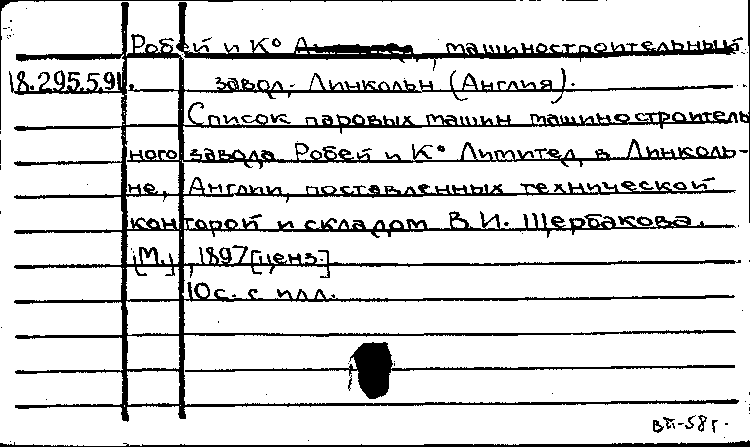 Робей и К° , машиностроительный
18.295.5.91. завод, Линкольн (Англия).
Список паровых машин машиностроитель
ного завода Робей и К° Лимитед, в Линколь-
не, Англии, поставленных технической
конторой и складом В.И. Щербакова.
[М.], 1897 [ценз.].
10 с. с илл.